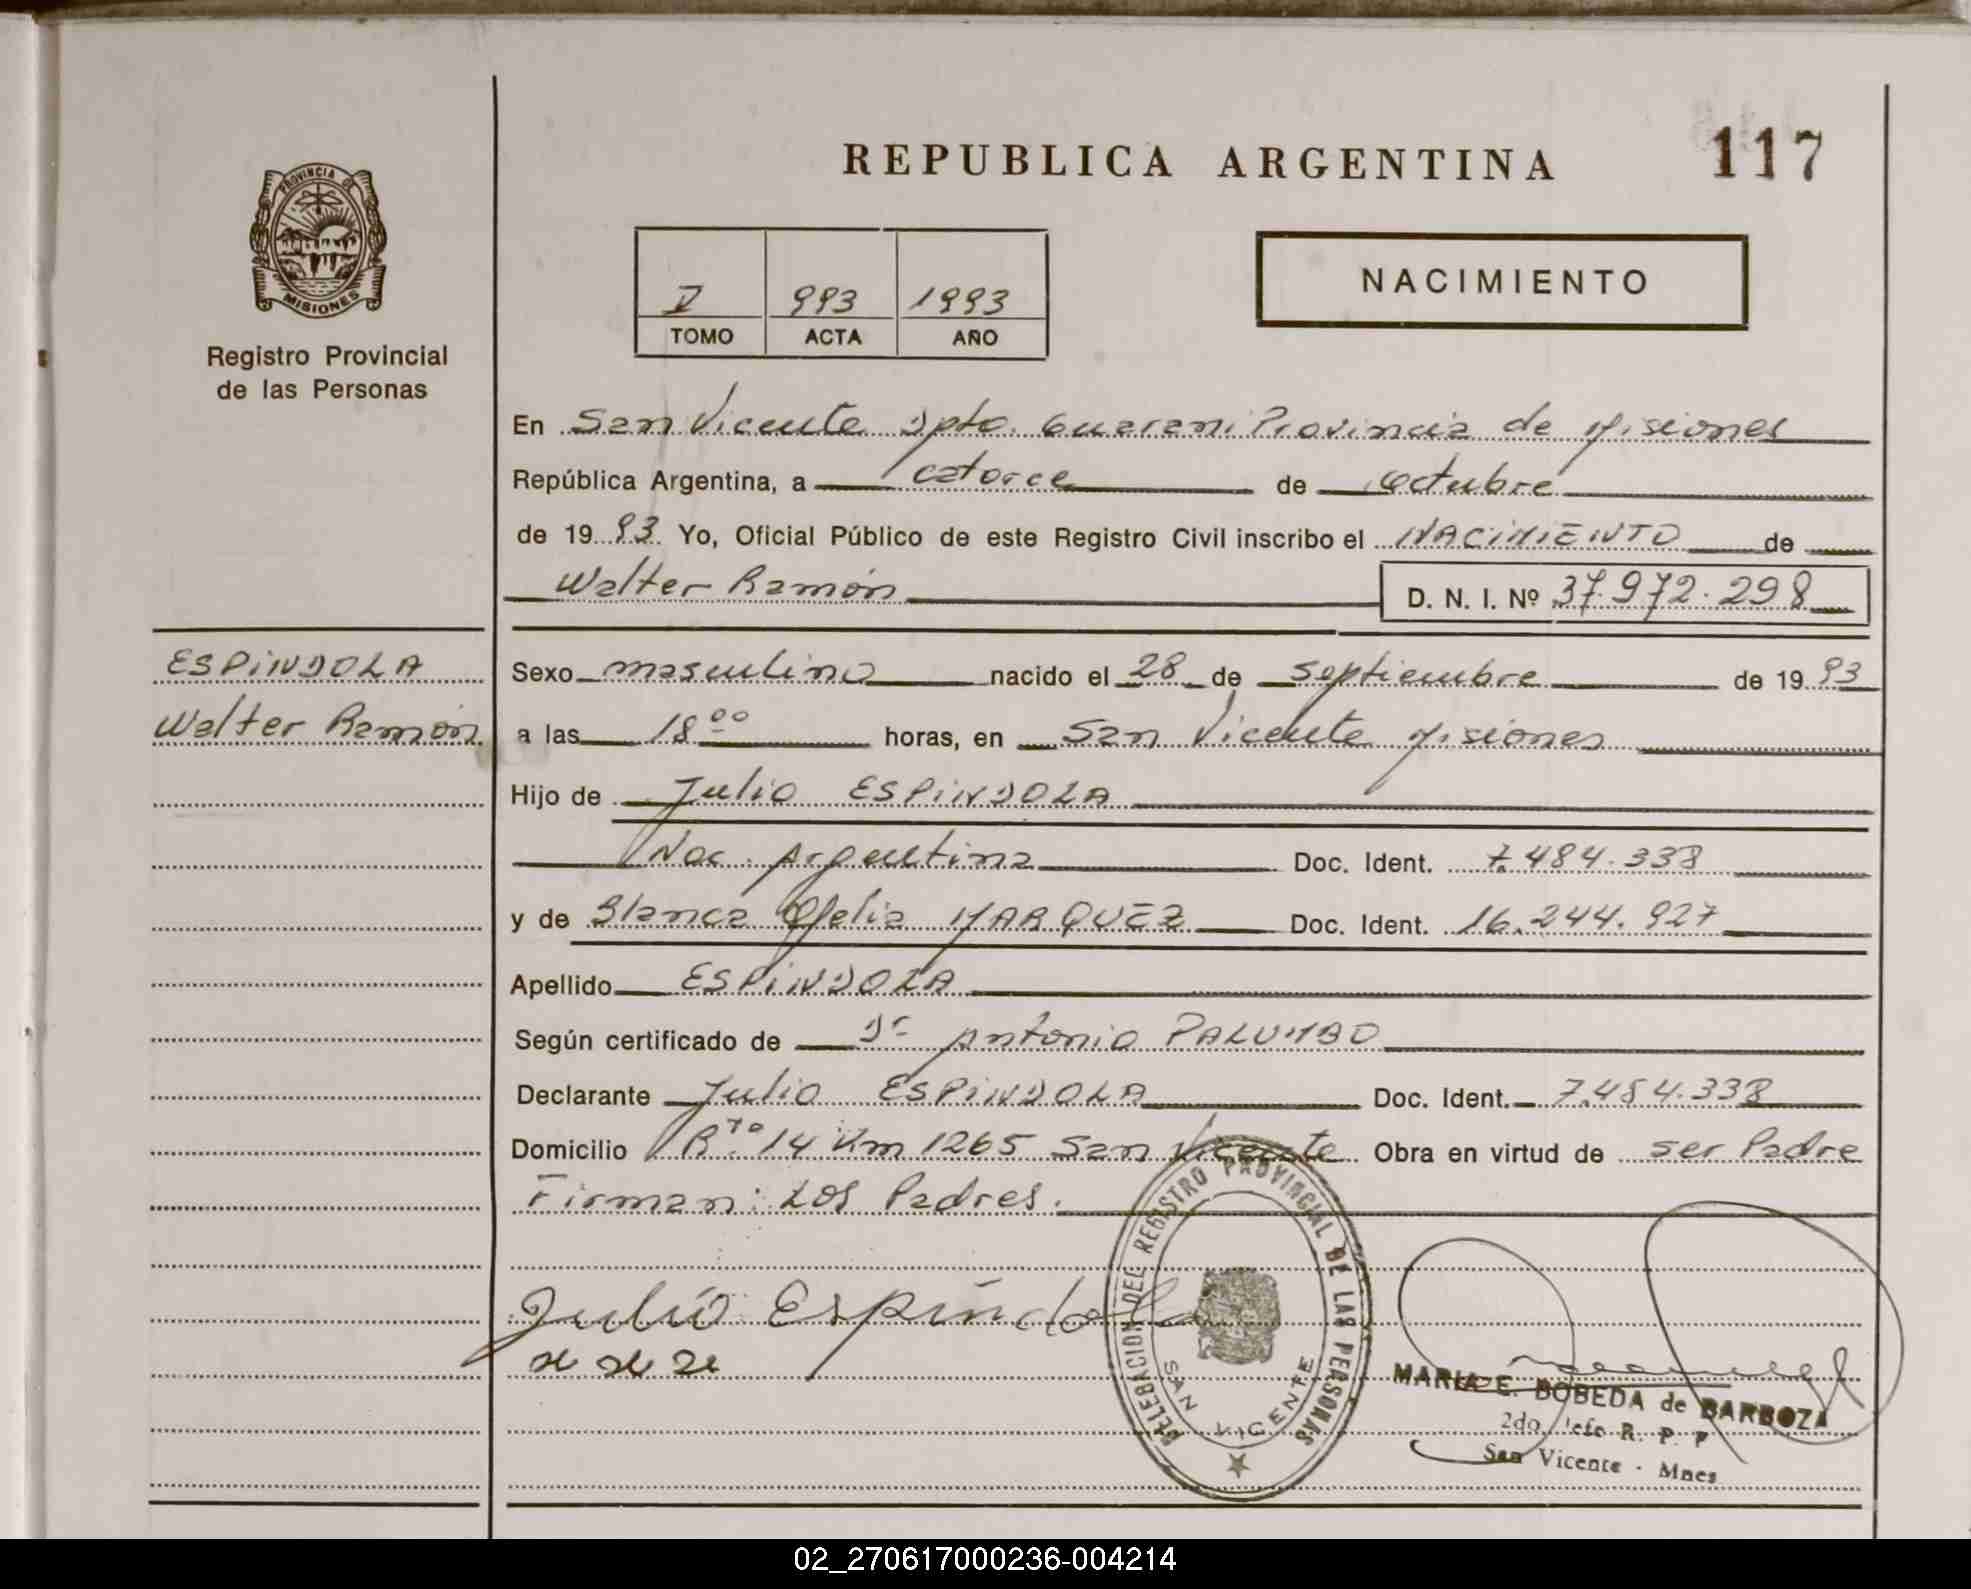 REPUBLICA ARGENTINA
117
PROVINCIA DE
MISIONES
Registro Provincial
de las Personas
NACIMIENTO
V 993 1993
TOMO ACTA AÑO
En San Vicente Dpto. Guarani Provincia de Misiones
República Argentina, a catorce de octubre
de 1993 Yo, Oficial Público de este Registro Civil inscribo el NACIMIENTO de
Walter Ramón D. N. I. Nº 37.972.298
ESPINDOLA
Walter Ramón
Sexo masculino nacido el 28 de septiembre de 1993
a las 18⁰⁰ horas, en San Vicente Misiones
Hijo de Julio ESPINDOLA
Nac. Argentina Doc. Ident. 7.484.338
y de Blanca Ofelia MARQUEZ Doc. Ident. 16.244.927
Apellido ESPINDOLA
Según certificado de Dr Antonio PALUMBO
Declarante Julio ESPINDOLA Doc. Ident. 7.484.338
Domicilio Rta. 14 Km 1265 San Vicente Obra en virtud de ser Padre
Firman: Los Padres.
Julio Espíndola
DELEGACION DEL REGISTRO PROVINCIAL DE LAS PERSONAS
SAN VICENTE
MARIA E. BOBEDA de BARBOZA
2do Jefe R. P. P
San Vicente - Mnes
02_270617000236-004214